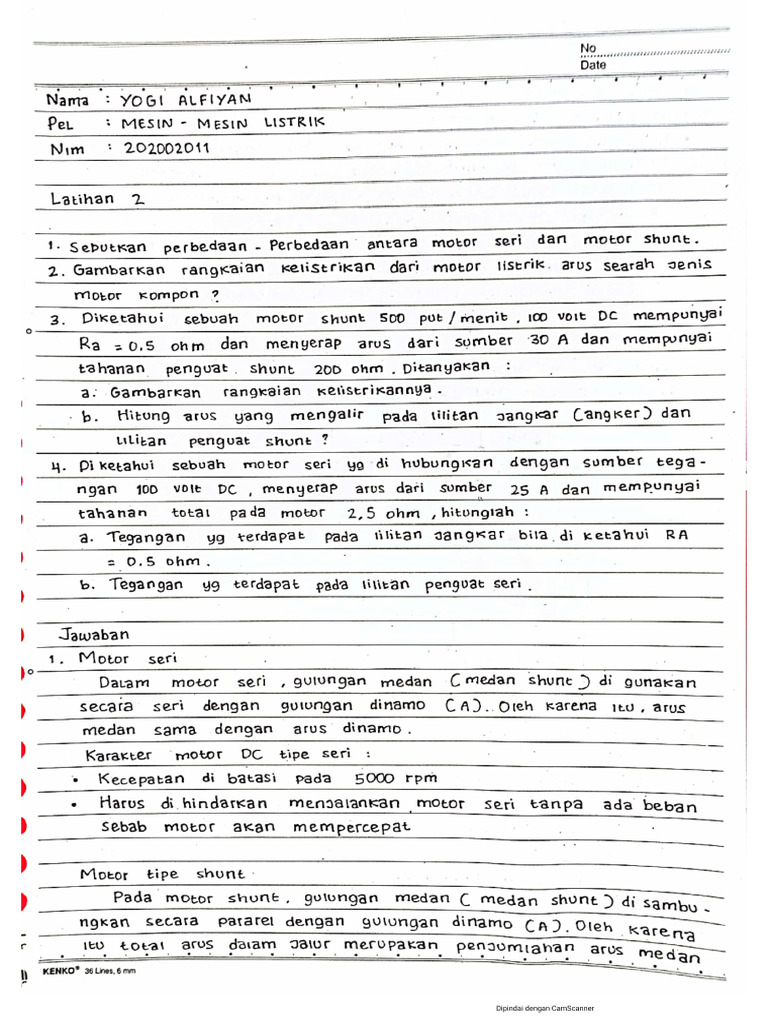 No
Date
Nama : YOGI ALFIYAN
Pel : MESIN - MESIN LISTRIK
Nim : 202002011
Latihan 2
1. Sebutkan perbedaan - Perbedaan antara motor seri dan motor shunt.
2. Gambarkan rangkaian kelistrikan dari motor listrik arus searah Jenis
motor kompon ?
3. Diketahui sebuah motor shunt 500 put / menit, 100 volt DC mempunyai
Ra = 0.5 ohm dan menyerap arus dari sumber 30 A dan mempunyai
tahanan penguat shunt 200 ohm. Ditanyakan :
a. Gambarkan rangkaian kelistrikannya.
b. Hitung arus yang mengalir pada lilitan Jangkar (angker) dan
Lilitan penguat shunt ?
4. Di ketahui sebuah motor seri yg di hubungkan dengan sumber tega -
ngan 100 volt DC, menyerap arus dari sumber 25 A dan mempunyai
tahanan total pada motor 2,5 ohm, hitunglah :
a. Tegangan yg terdapat pada lilitan Jangkar bila di ketahui RA
= 0.5 ohm.
b. Tegangan yg terdapat pada lilitan penguat seri.
Jawaban
1. Motor seri
Dalam motor seri, gulungan medan ( medan shunt ) di gunakan
secara seri dengan gulungan dinamo (A). Oleh karena itu, arus
medan sama dengan arus dinamo.
Karakter motor DC tipe seri :
• Kecepatan di batasi pada 5000 rpm
• Harus di hindarkan menjalankan motor seri tanpa ada beban
sebab motor akan mempercepat
Motor tipe shunt
Pada motor shunt, gulungan medan ( medan shunt ) di sambu -
ngkan secara pararel dengan gulungan dinamo (A). Oleh karena
itu total arus dalam Jalur merupakan penjumlahan arus medan
KENKO® 36 Lines, 6 mm
Dipindai dengan CamScanner